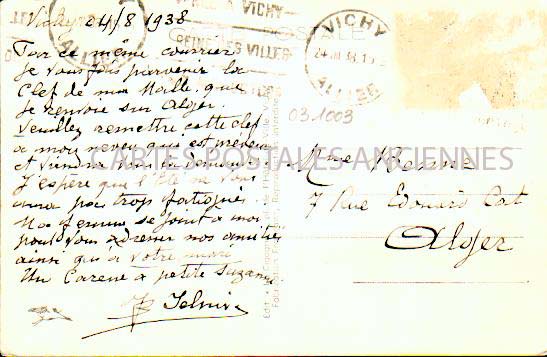 Vichy 24/8 1938
Par ce même courrier
je vous fais parvenir la
clef de ma Malle que
je renvoie sur Alger.
Veuillez remettre cette clef
a mon neveu qui est prévenu
et viendra vous la demander
J'espère que l'Eté ne vous
aura pas trop fatigués
Ma femme se joint a moi
pour vous adresser nos amitiés
ainsi qu'a votre mari
Un Caresse a petite Suzanne
VICHY
REINE DES VILLES
VICHY
24 VIII 38
ALLIER
ALLIER
031003
CARTES POSTALES ANCIENNES
Mme
7 Rue Edouard Cat
Alger